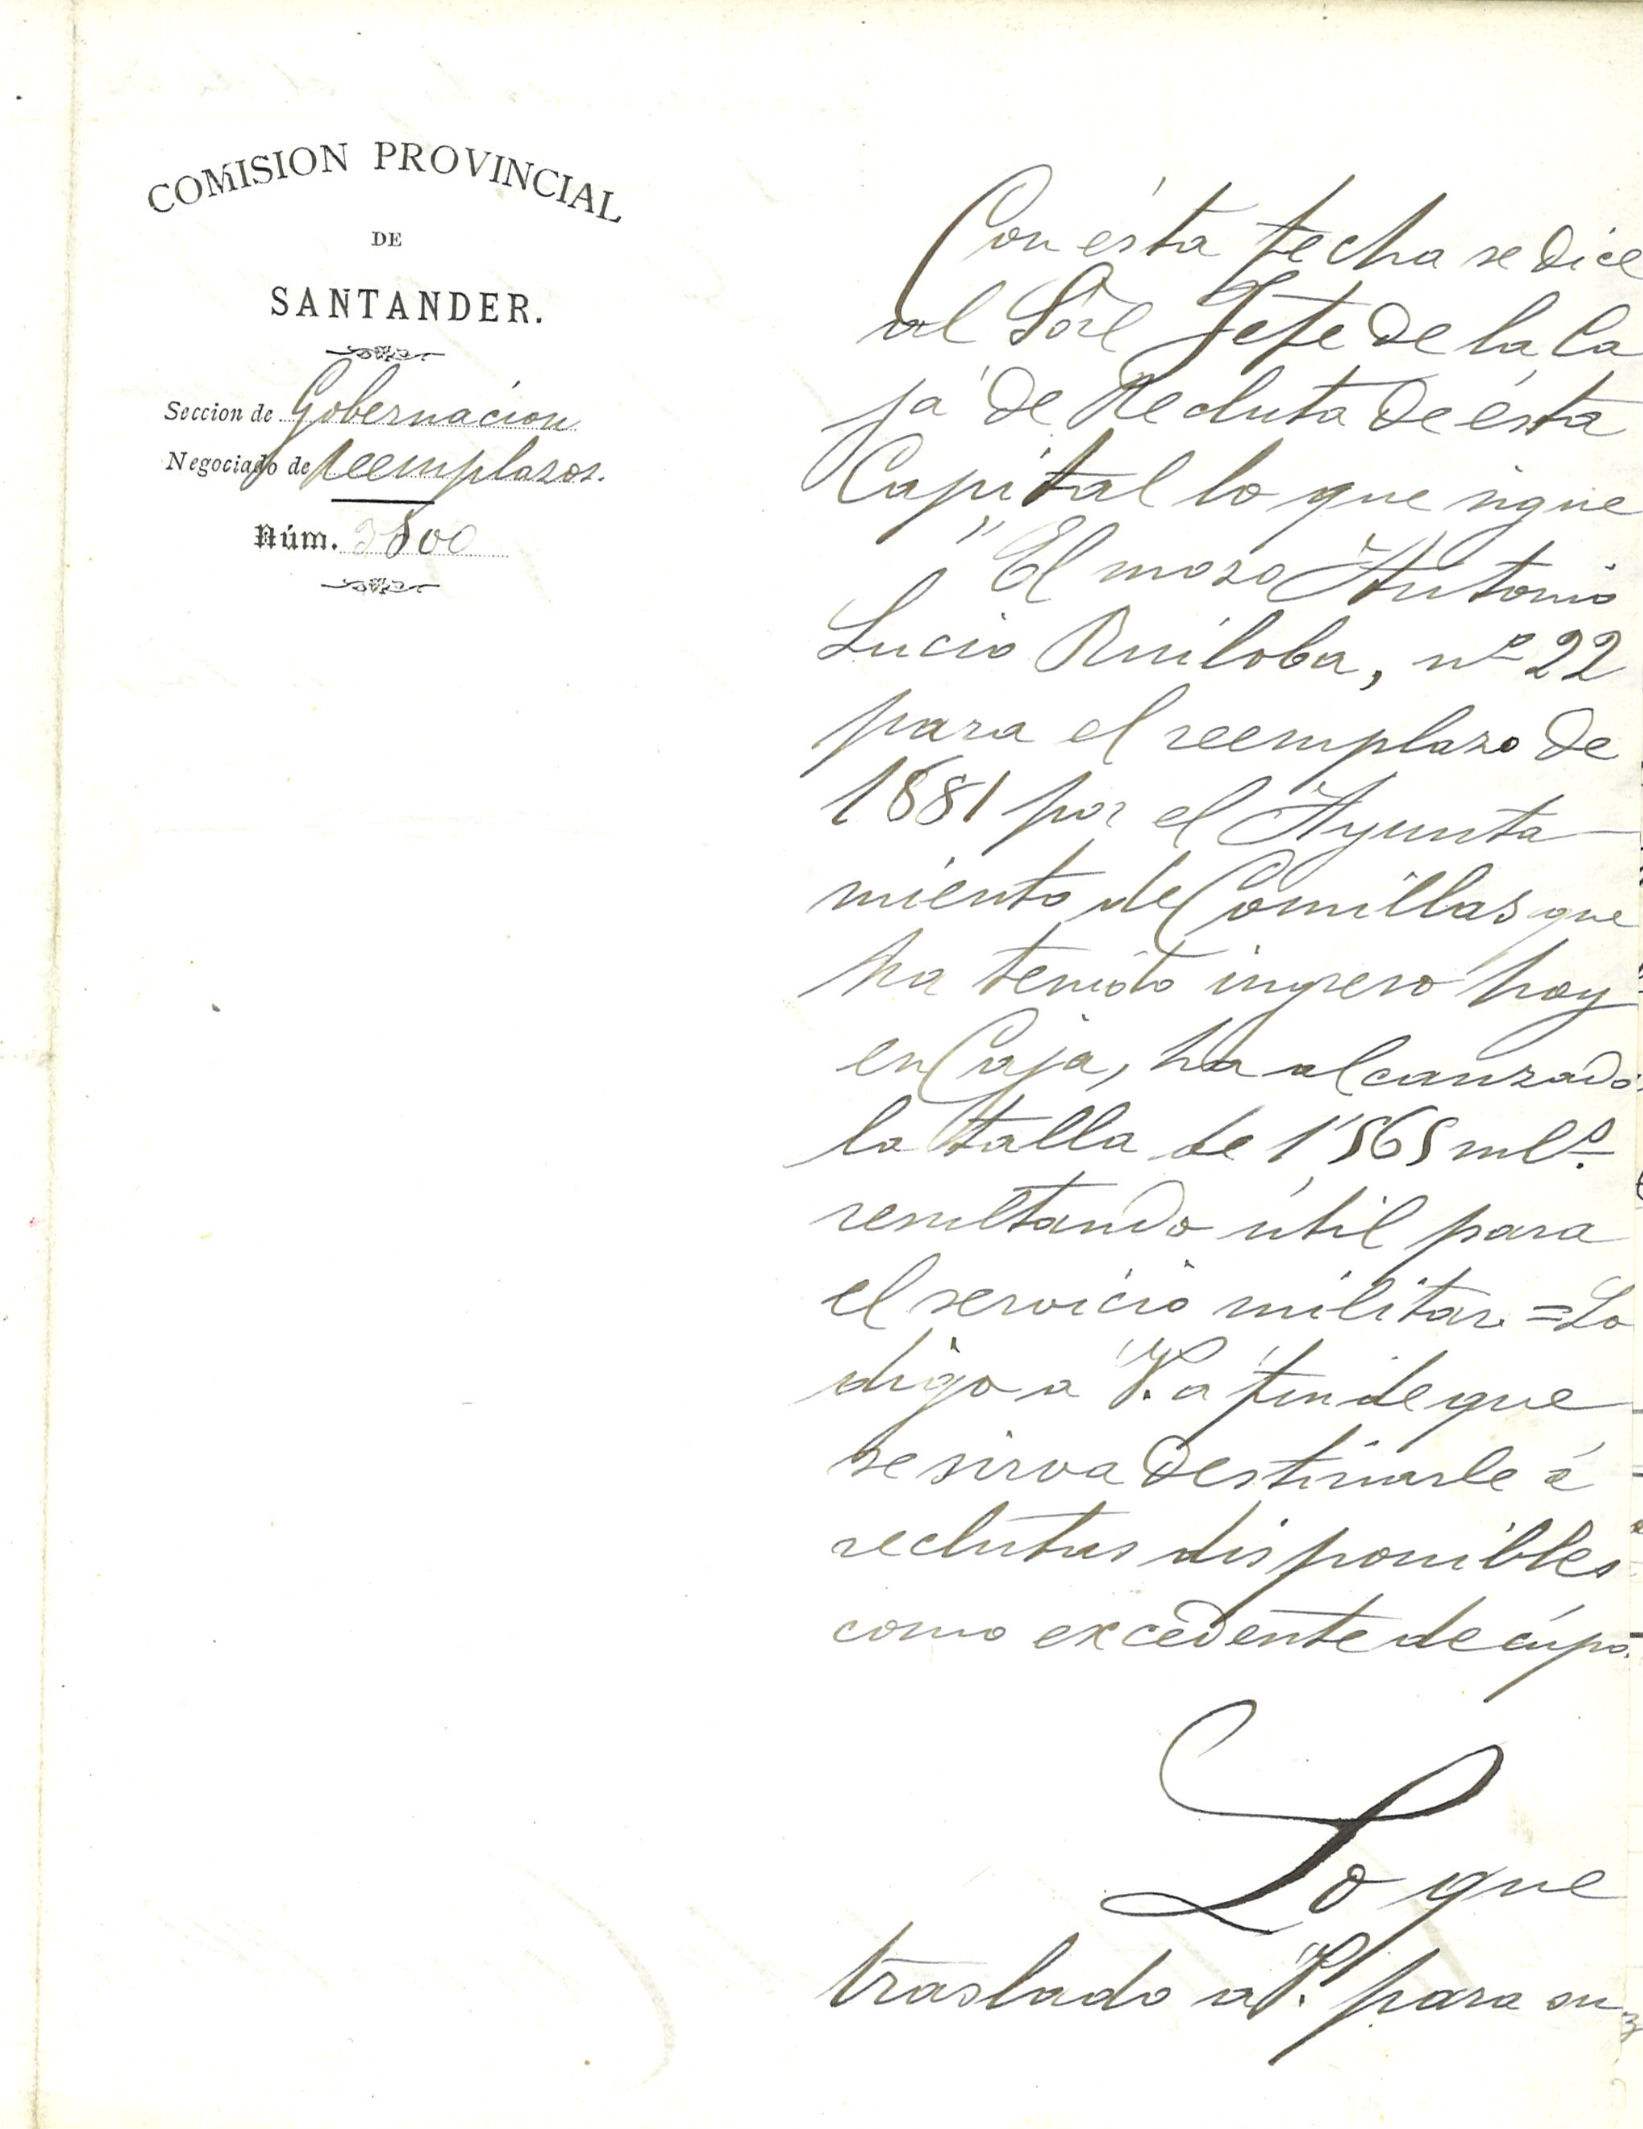 COMISION PROVINCIAL
DE
SANTANDER.
Seccion de Gobernacion
Negociado de reemplazos.
Núm. 3800
Con ésta fecha se dice
al Sör Jefe de la Ca
já de Recluta de ésta
Capital lo que sigue
"El mozo Antonio
Lucio Ruiloba, nº 22
para el reemplazo de
1881 por el Ayunta
miento de Comillas que
ha tenido ingreso hoy
en Caja, ha alcanzado
la talla de 1'565 mlº.
resultando útil para
el servicio militar. = Lo
digo a V. a fin de que
se sirva destinarle á
reclutas disponibles
como excedente de cúpo.
Lo que
traslado a V. para su